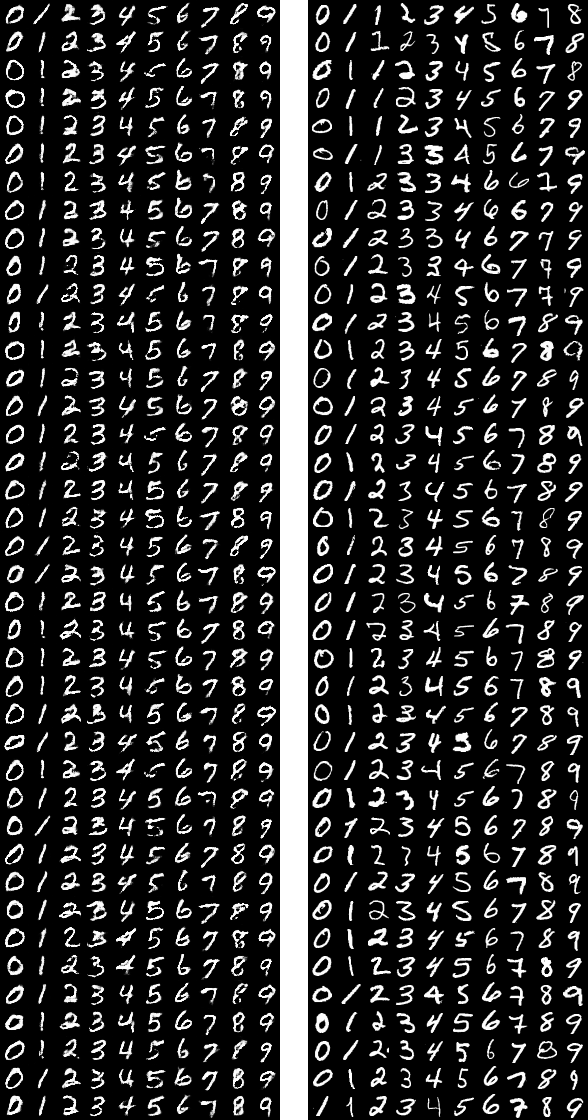 0 1 2 3 4 5 6 7 8 9
0 1 2 3 4 5 6 7 8 9
0 1 2 3 4 5 6 7 8 9
0 1 2 3 4 5 6 7 8 9
0 1 2 3 4 5 6 7 8 9
0 1 2 3 4 5 6 7 8 9
0 1 2 3 4 5 6 7 8 9
0 1 2 3 4 5 6 7 8 9
0 1 2 3 4 5 6 7 8 9
0 1 2 3 4 5 6 7 8 9
0 1 2 3 4 5 6 7 8 9
0 1 2 3 4 5 6 7 8 9
0 1 2 3 4 5 6 7 8 9
0 1 2 3 4 5 6 7 8 9
0 1 2 3 4 5 6 7 8 9
0 1 2 3 4 5 6 7 8 9
0 1 2 3 4 5 6 7 8 9
0 1 2 3 4 5 6 7 8 9
0 1 2 3 4 5 6 7 8 9
0 1 2 3 4 5 6 7 8 9
0 1 2 3 4 5 6 7 8 9
0 1 2 3 4 5 6 7 8 9
0 1 2 3 4 5 6 7 8 9
0 1 2 3 4 5 6 7 8 9
0 1 2 3 4 5 6 7 8 9
0 1 2 3 4 5 6 7 8 9
0 1 2 3 4 5 6 7 8 9
0 1 2 3 4 5 6 7 8 9
0 1 2 3 4 5 6 7 8 9
0 1 2 3 4 5 6 7 8 9
0 1 2 3 4 5 6 7 8 9
0 1 2 3 4 5 6 7 8 9
0 1 2 3 4 5 6 7 8 9
0 1 2 3 4 5 6 7 8 9
0 1 2 3 4 5 6 7 8 9
0 1 2 3 4 5 6 7 8 9
0 1 2 3 4 5 6 7 8 9
0 1 2 3 4 5 6 7 8 9
0 1 2 3 4 5 6 7 8 9
0 1 2 3 4 5 6 7 8 9
0 1 1 2 3 4 5 6 7 8
0 1 1 2 3 4 8 6 7 8
0 1 1 2 3 4 5 6 7 8
0 1 1 2 3 4 5 6 7 9
0 1 1 2 3 4 5 6 7 9
0 1 1 3 3 4 5 6 7 9
0 1 2 3 3 4 6 6 7 9
0 1 2 3 3 4 6 6 7 9
0 1 2 3 3 4 6 7 7 9
0 1 2 3 3 4 6 7 7 9
0 1 2 3 4 5 6 7 7 9
0 1 2 3 4 5 6 7 8 9
0 1 2 3 4 5 6 7 8 9
0 1 2 3 4 5 6 7 8 9
0 1 2 3 4 5 6 7 8 9
0 1 2 3 4 5 6 7 8 9
0 1 2 3 4 5 6 7 8 9
0 1 2 3 4 5 6 7 8 9
0 1 2 3 4 5 6 7 8 9
0 1 2 3 4 5 6 7 8 9
0 1 2 3 4 5 6 7 8 9
0 1 2 3 4 5 6 7 8 9
0 1 2 3 4 5 6 7 8 9
0 1 2 3 4 5 6 7 8 9
0 1 2 3 4 5 6 7 8 9
0 1 2 3 4 5 6 7 8 9
0 1 2 3 4 5 6 7 8 9
0 1 2 3 4 5 6 7 8 9
0 1 2 3 4 5 6 7 8 9
0 1 2 3 4 5 6 7 8 9
0 1 2 3 4 5 6 7 8 9
0 1 2 3 4 5 6 7 8 9
0 1 2 3 4 5 6 7 8 9
0 1 2 3 4 5 6 7 8 9
0 1 2 3 4 5 6 7 8 9
0 1 2 3 4 5 6 7 8 9
0 1 2 3 4 5 6 7 8 9
0 1 2 3 4 5 6 7 8 9
0 1 2 3 4 5 6 7 8 9
1 1 2 3 4 5 6 7 8 9